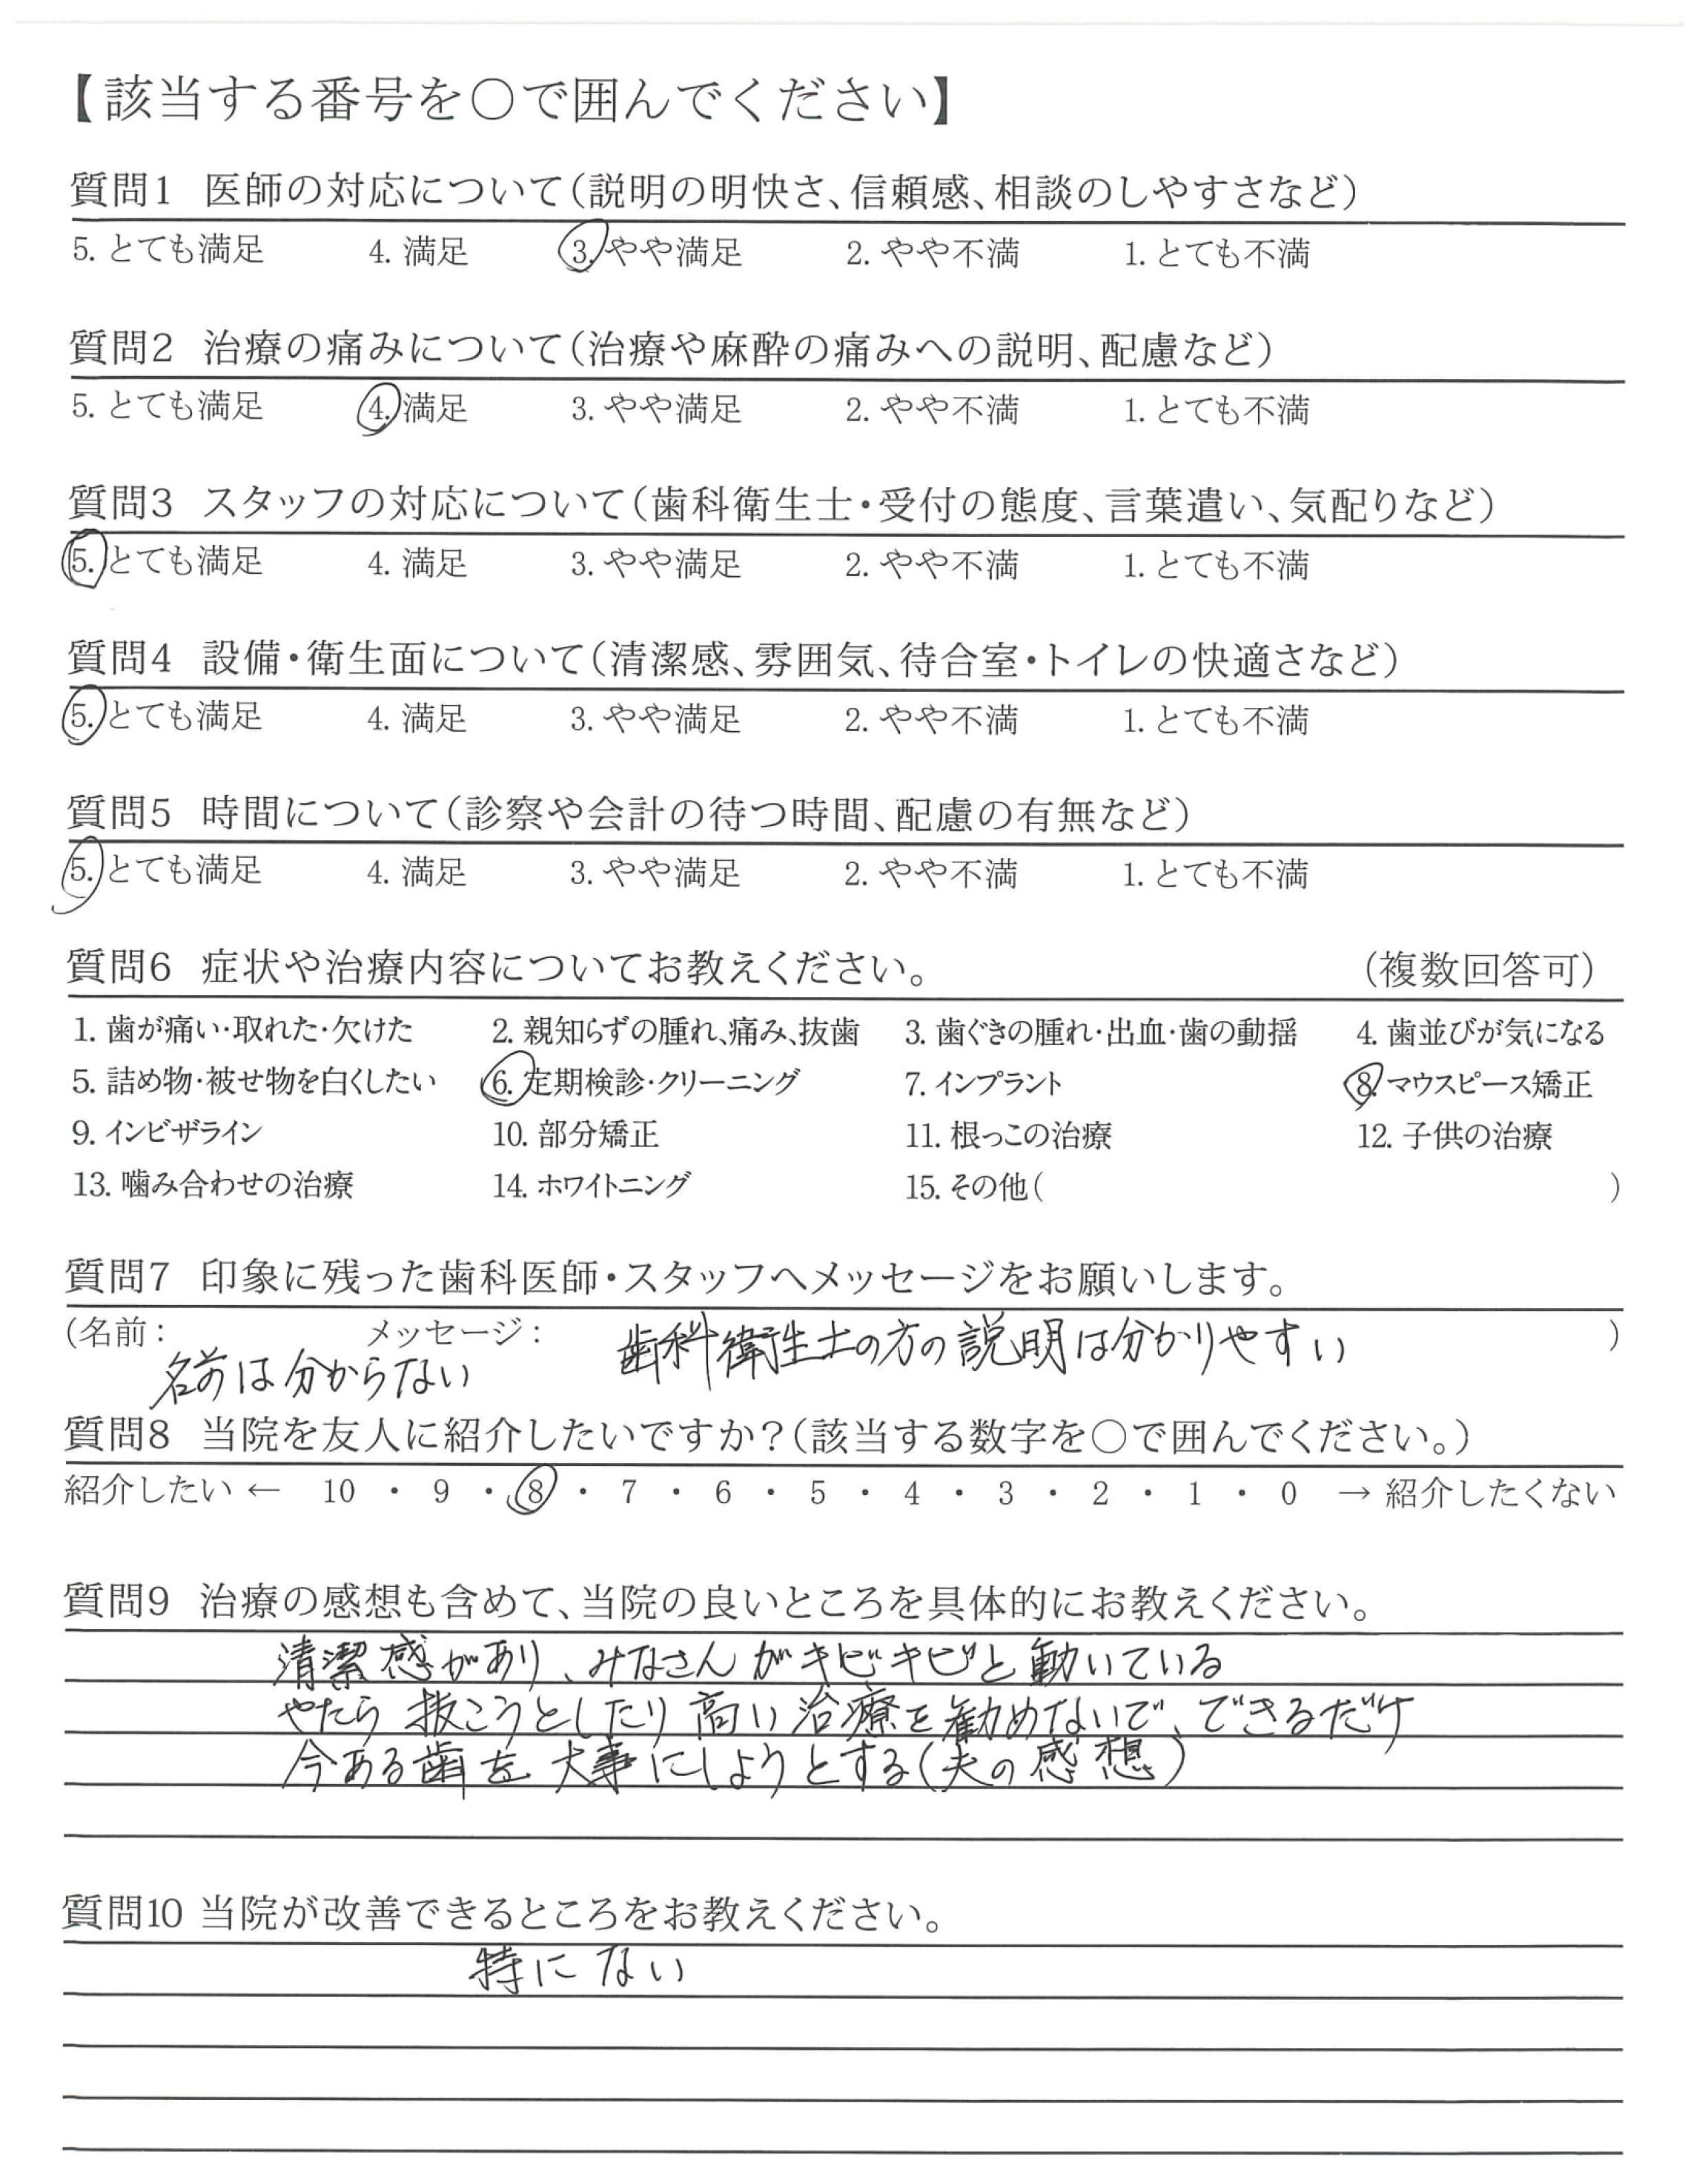 【該当する番号を○で囲んでください】
質問1 医師の対応について（説明の明快さ、信頼感、相談のしやすさなど）
5. とても満足 4. 満足 3. やや満足 2. やや不満 1. とても不満
質問2 治療の痛みについて（治療や麻酔の痛みへの説明、配慮など）
5. とても満足 4. 満足 3. やや満足 2. やや不満 1. とても不満
質問3 スタッフの対応について（歯科衛生士・受付の態度、言葉遣い、気配りなど）
5. とても満足 4. 満足 3. やや満足 2. やや不満 1. とても不満
質問4 設備・衛生面について（清潔感、雰囲気、待合室・トイレの快適さなど）
5. とても満足 4. 満足 3. やや満足 2. やや不満 1. とても不満
質問5 時間について（診察や会計の待つ時間、配慮の有無など）
5. とても満足 4. 満足 3. やや満足 2. やや不満 1. とても不満
質問6 症状や治療内容についてお教えください。 （複数回答可）
1. 歯が痛い・取れた・欠けた 2. 親知らずの腫れ、痛み、抜歯 3. 歯ぐきの腫れ・出血・歯の動揺 4. 歯並びが気になる
5. 詰め物・被せ物を白くしたい 6. 定期検診・クリーニング 7. インプラント 8. マウスピース矯正
9. インビザライン 10. 部分矯正 11. 根っこの治療 12. 子供の治療
13. 噛み合わせの治療 14. ホワイトニング 15. その他（ ）
質問7 印象に残った歯科医師・スタッフへメッセージをお願いします。
（名前： メッセージ： 歯科衛生士の方の説明は分かりやすい ）
名前は分からない
質問8 当院を友人に紹介したいですか？（該当する数字を○で囲んでください。）
紹介したい ← 10 ・ 9 ・ 8 ・ 7 ・ 6 ・ 5 ・ 4 ・ 3 ・ 2 ・ 1 ・ 0 → 紹介したくない
質問9 治療の感想も含めて、当院の良いところを具体的にお教えください。
清潔感があり、みなさんがキビキビと動いている
やたら抜こうとしたり高い治療を勧めないで、できるだけ
今ある歯を大事にしようとする（夫の感想）
質問10 当院が改善できるところをお教えください。
特にない